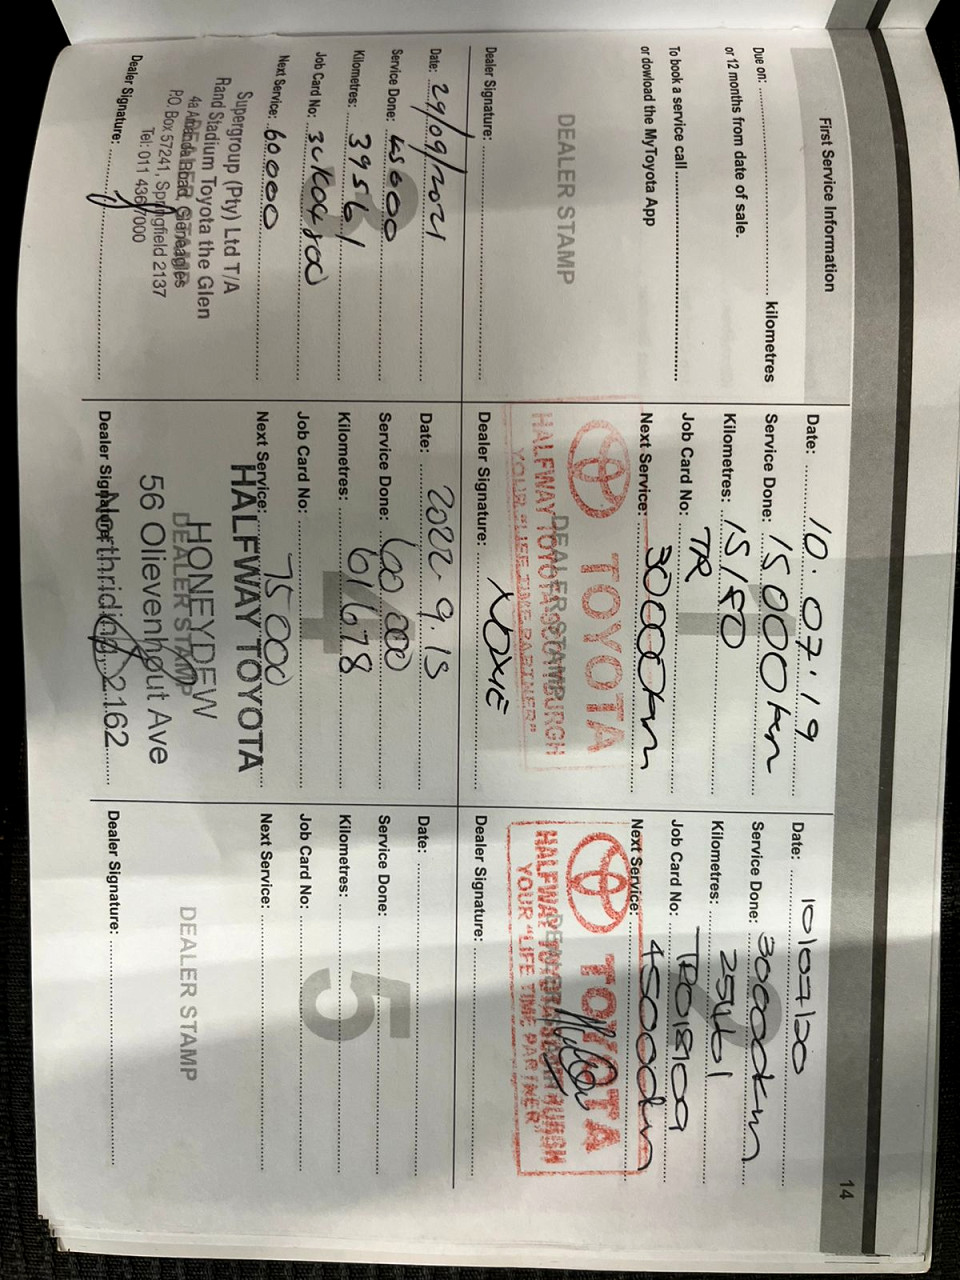 14
First Service Information
Due on: kilometres
or 12 months from date of sale.
To book a service call
or dowload the MyToyota App
DEALER STAMP
Dealer Signature:
Date: 10.07.19
Service Done: 15000km
Kilometres: 15150
Job Card No: TR
Next Service: 30000km
TOYOTA
DEALER STAMP
HALFWAY TOYOTA
YOUR "LIFE TIME PARTNER"
Dealer Signature:
Date: 10/07/20
Service Done: 30000km
Kilometres: 25461
Job Card No: TR018109
Next Service: 45000km
TOYOTA
HALFWAY TOYOTA
YOUR "LIFE TIME PARTNER"
Dealer Signature:
Date: 29/09/2021
Service Done: 45000
Kilometres: 39561
Job Card No:
Next Service: 60000
Supergroup (Pty) Ltd T/A
Rand Stadium Toyota the Glen
4a Amanda Road, Gleneagles
P.O. Box 57241, Springfield 2137
Tel: 011 436 7000
Dealer Signature:
4
Date: 2022.9.15
Service Done: 60 000
Kilometres: 61678
Job Card No:
Next Service: 75000
HALFWAY TOYOTA
HONEYDEW
DEALER STAMP
56 Olievenhout Ave
Dealer Signature: Northriding, 2162
5
Date:
Service Done:
Kilometres:
Job Card No:
Next Service:
DEALER STAMP
Dealer Signature: